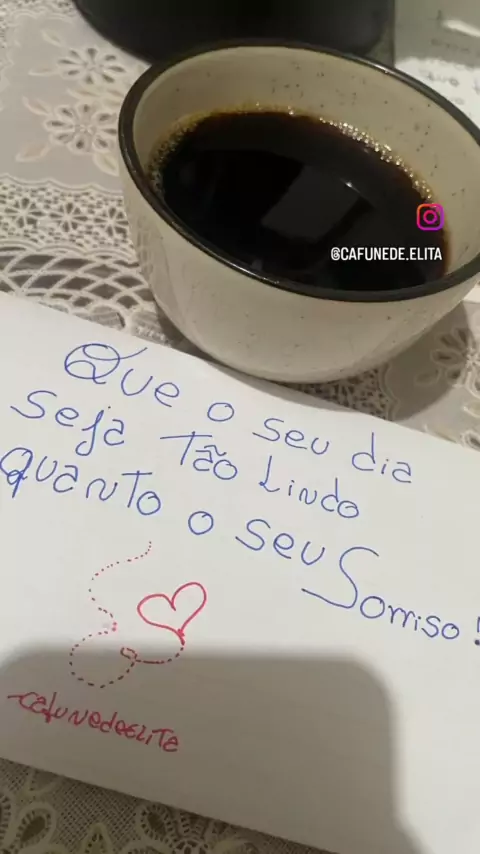 @CAFUNEDE.ELITA
Que o seu dia
seja Tão Lindo
quanto o seu Sorriso!
cafunedeELITA